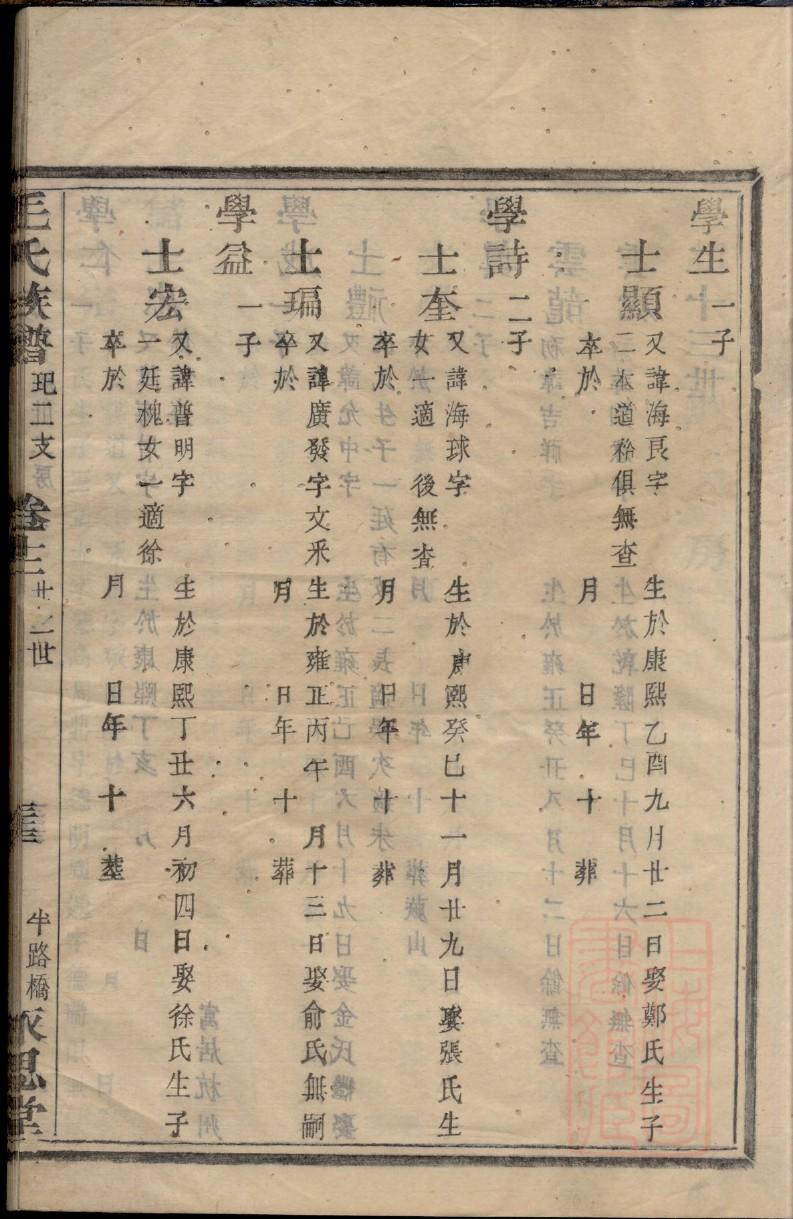 學生一子
士顯又諱海長字 生於康熙乙酉九月廿二日娶鄭氏生子
二本道 俱無查
卒於 月 日年 十 葬
學詩二子
士奎又諱海球字 生於康熙癸巳十一月廿九日娶張氏生
女一適 後無查
卒於 月 日年 十 葬
士瑞又諱廣發字文釆生於雍正丙午 月十三日娶俞氏無嗣
卒於 月 日年 十 葬
學益一子
士宏又諱普明字 生於康熙丁丑六月初四日娶徐氏生子
一廷槐女一適徐
卒於 月 日年 十 塟
王氏族譜 玘二支房 卷十二 廿二世 半路橋 永思堂